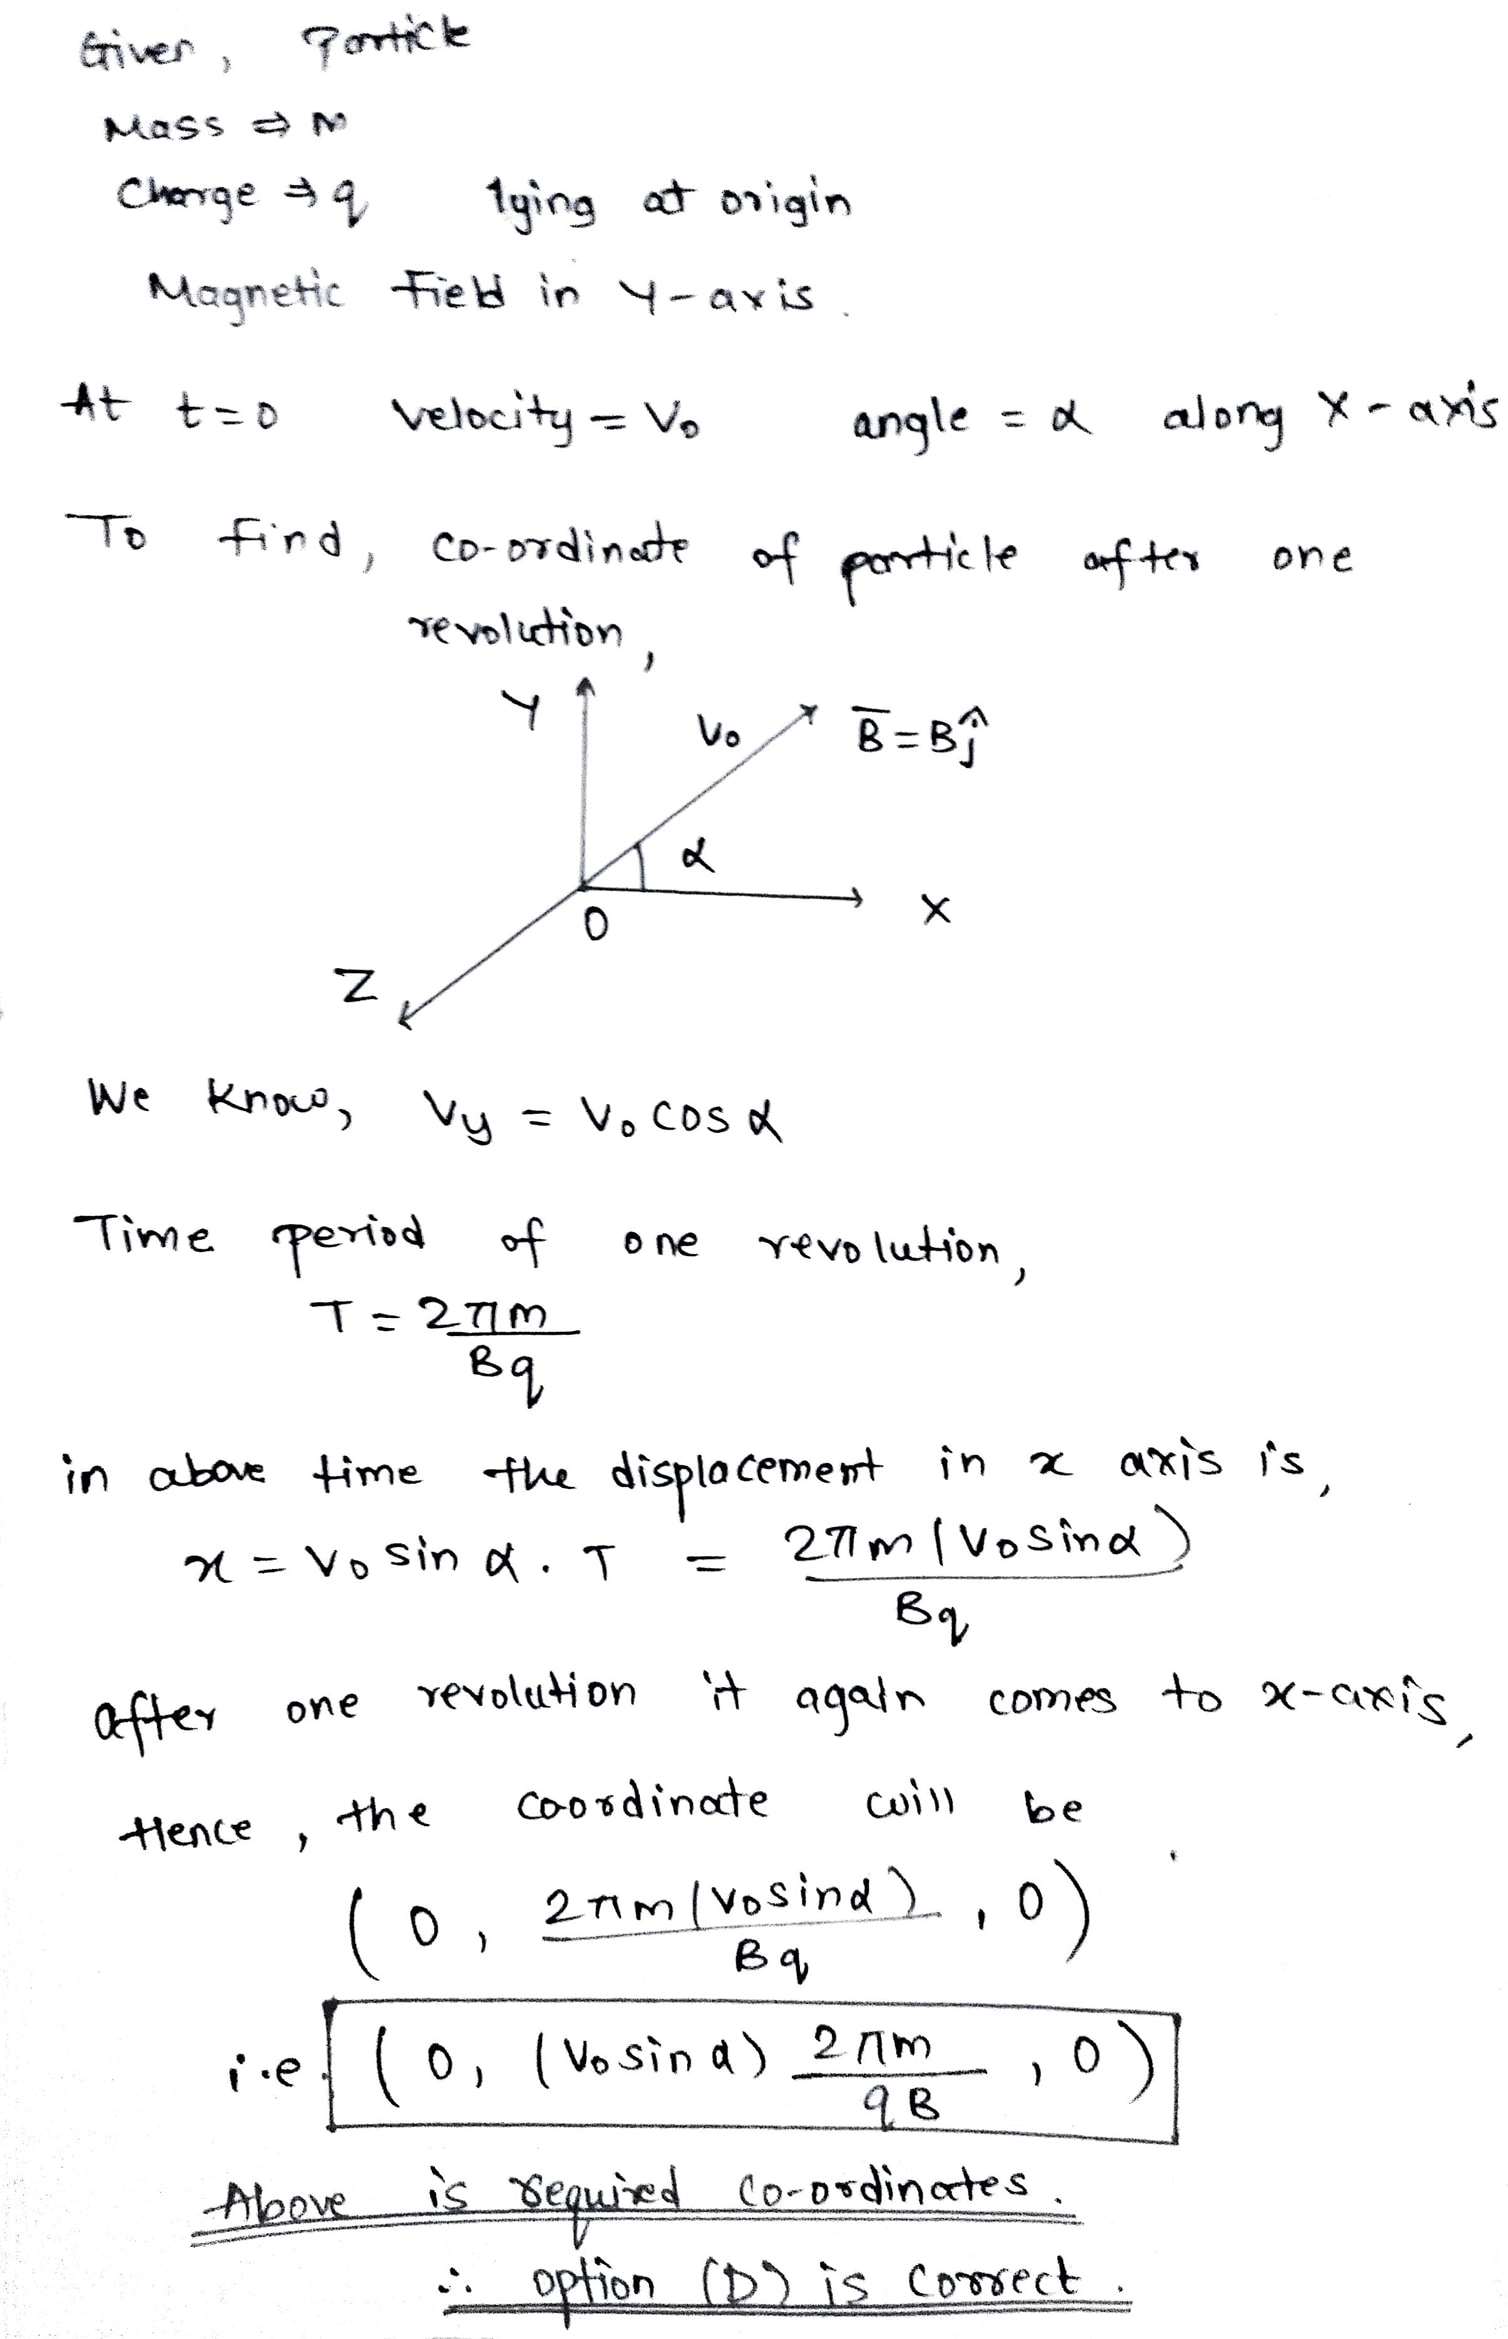 Given, Particle
Mass ⇒ m
Charge ⇒ q lying at origin
Magnetic field in Y-axis.
At t=0 velocity = V₀ angle = α along X-axis
To find, co-ordinate of particle after one
revolution,
Y V₀ B̅=Bĵ
α
O X
Z
We know, Vy = V₀ cos α
Time period of one revolution,
T = 2πm
Bq
in above time the displacement in x axis is,
x = V₀ sin α . T = 2πm (V₀sinα)
Bq
after one revolution it again comes to x-axis,
Hence, the coordinate will be
(0, 2πm(V₀sinα) , 0)
Bq
i.e. (0, (V₀sinα) 2πm , 0)
qB
Above is required co-ordinates.
∴ option (D) is correct.